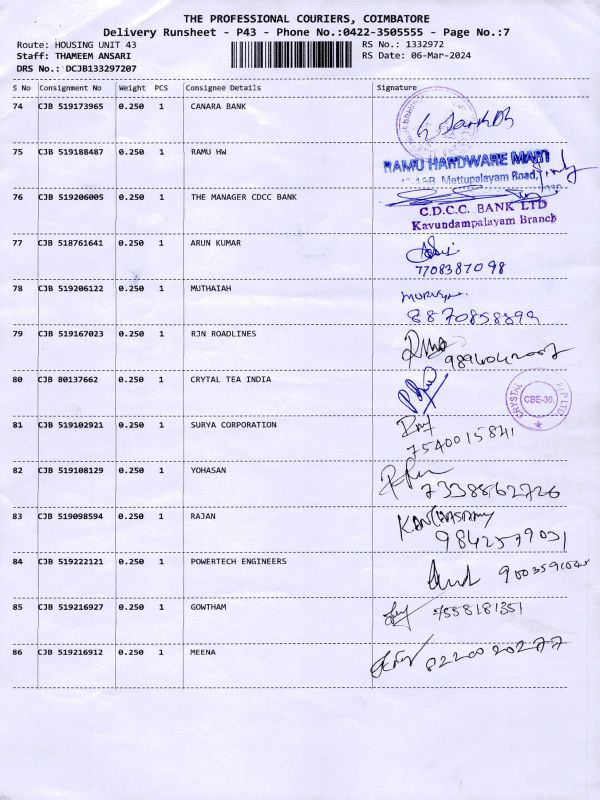 THE PROFESSIONAL COURIERS, COIMBATORE
Delivery Runsheet - P43 - Phone No.:0422-3505555 - Page No.:7
Route: HOUSING UNIT 43 RS No.: 1332972
Staff: THAMEEM ANSARI RS Date: 06-Mar-2024
DRS No.: DCJB133297207
S No Consignment No Weight PCS Consignee Details Signature
74 CJB 519173965 0.250 1 CANARA BANK
75 CJB 519188487 0.250 1 RAMU HW
RAMU HARDWARE MART
Mettupalayam Road,
76 CJB 519206005 0.250 1 THE MANAGER CDCC BANK
C.D.C.C. BANK LTD
Kavundampalayam Branch
77 CJB 518761641 0.250 1 ARUN KUMAR
7708387098
78 CJB 519206122 0.250 1 MUTHAIAH
8870858899
79 CJB 519167023 0.250 1 RJN ROADLINES
80 CJB 80137662 0.250 1 CRYTAL TEA INDIA
CRYSTAL
CBE-30.
81 CJB 519102921 0.250 1 SURYA CORPORATION
7540015841
82 CJB 519108129 0.250 1 YOHASAN
7338862726
83 CJB 519098594 0.250 1 RAJAN
9842579031
84 CJB 519222121 0.250 1 POWERTECH ENGINEERS
85 CJB 519216927 0.250 1 GOWTHAM
7558181351
86 CJB 519216912 0.250 1 MEENA
8220020277